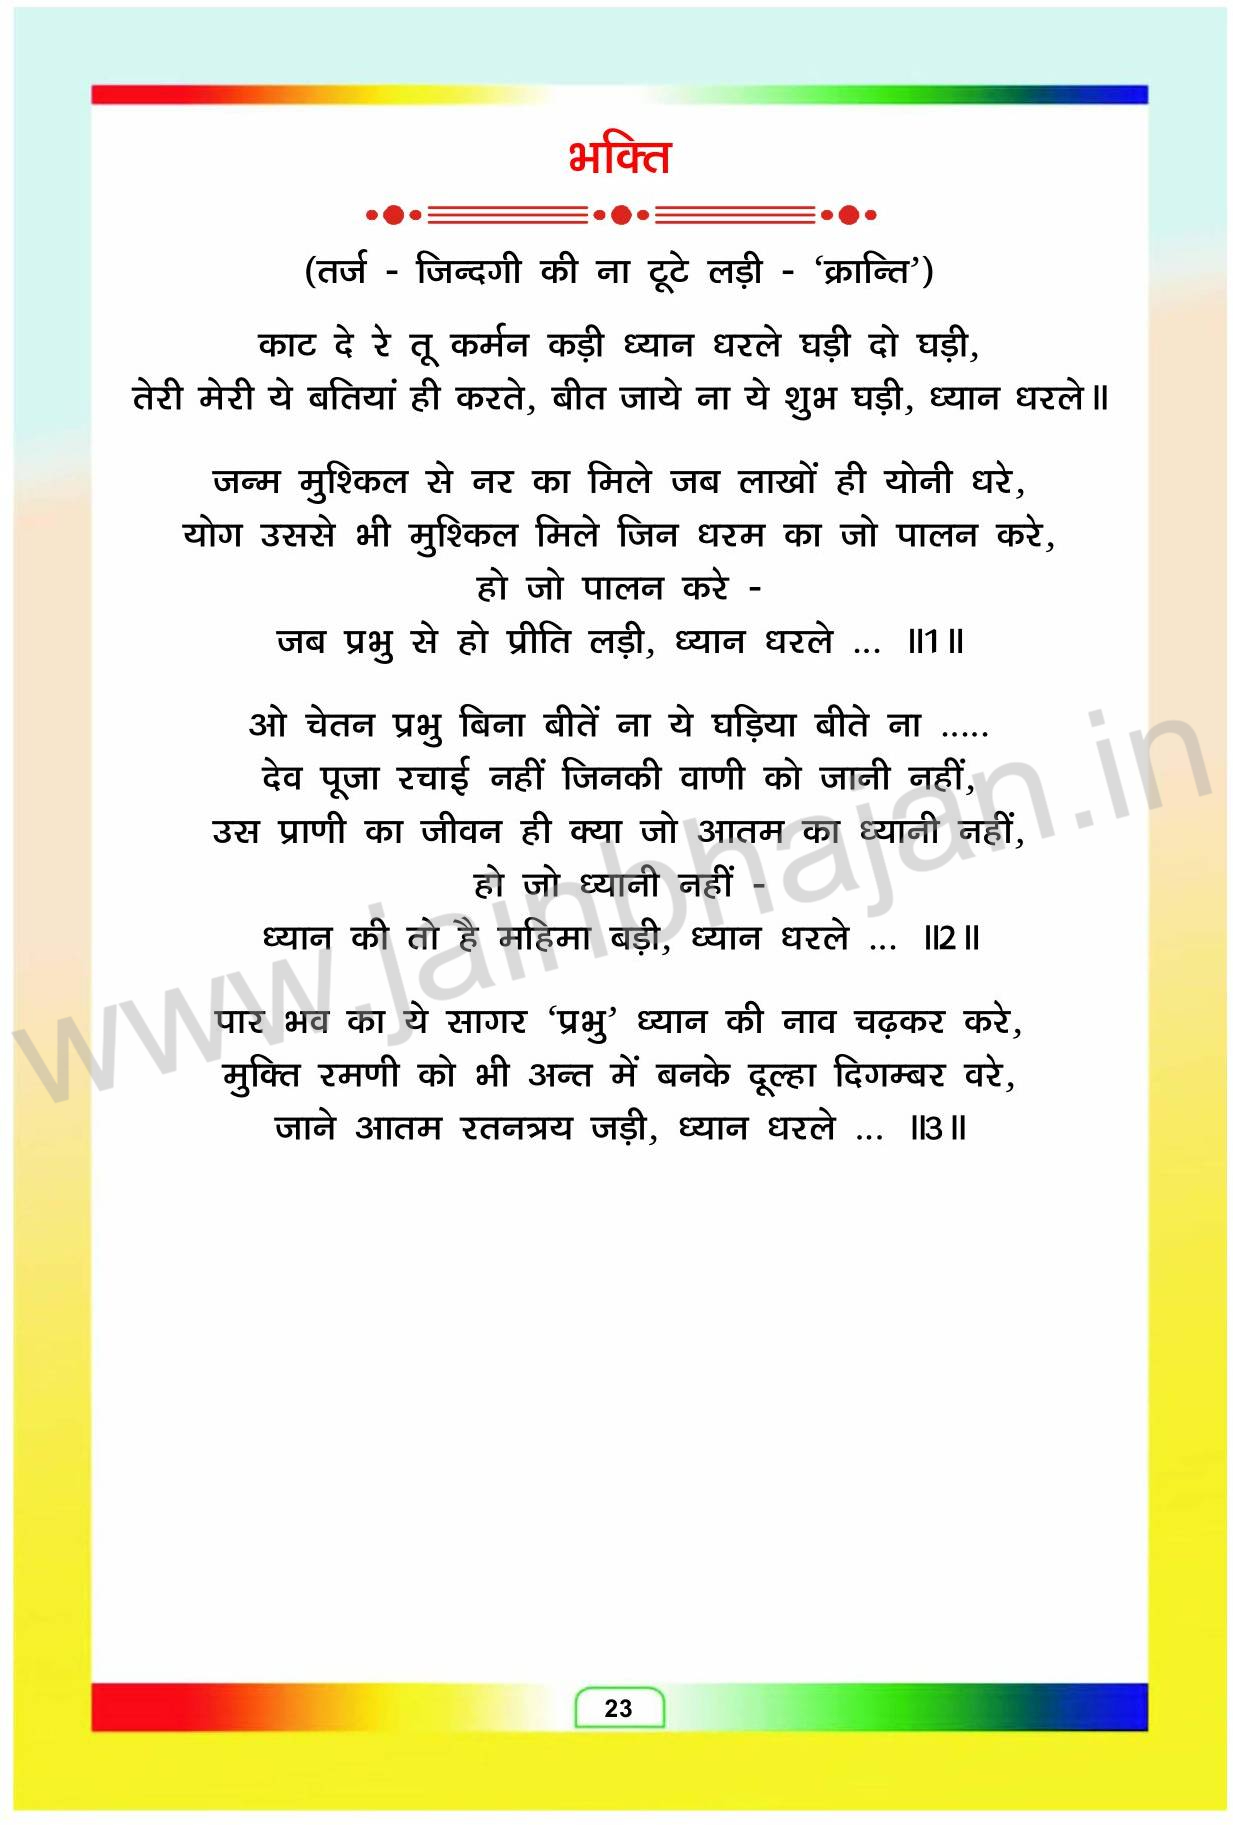 भक्ति
(तर्ज - जिन्दगी की ना टूटे लड़ी - ‘क्रान्ति’)
काट दे रे तू कर्मन कड़ी ध्यान धरले घड़ी दो घड़ी,
तेरी मेरी ये बतियां ही करते, बीत जाये ना ये शुभ घड़ी, ध्यान धरले॥
जन्म मुश्किल से नर का मिले जब लाखों ही योनी धरे,
योग उससे भी मुश्किल मिले जिन धरम का जो पालन करे,
हो जो पालन करे -
जब प्रभु से हो प्रीति लड़ी, ध्यान धरले ... ॥1॥
ओ चेतन प्रभु बिना बीतें ना ये घड़िया बीते ना .....
देव पूजा रचाई नहीं जिनकी वाणी को जानी नहीं,
उस प्राणी का जीवन ही क्या जो आतम का ध्यानी नहीं,
हो जो ध्यानी नहीं -
ध्यान की तो है महिमा बड़ी, ध्यान धरले ... ॥2॥
पार भव का ये सागर ‘प्रभु’ ध्यान की नाव चढ़कर करे,
मुक्ति रमणी को भी अन्त में बनके दूल्हा दिगम्बर वरे,
जाने आतम रतनत्रय जड़ी, ध्यान धरले ... ॥3॥
www.jainbhajan.in
23